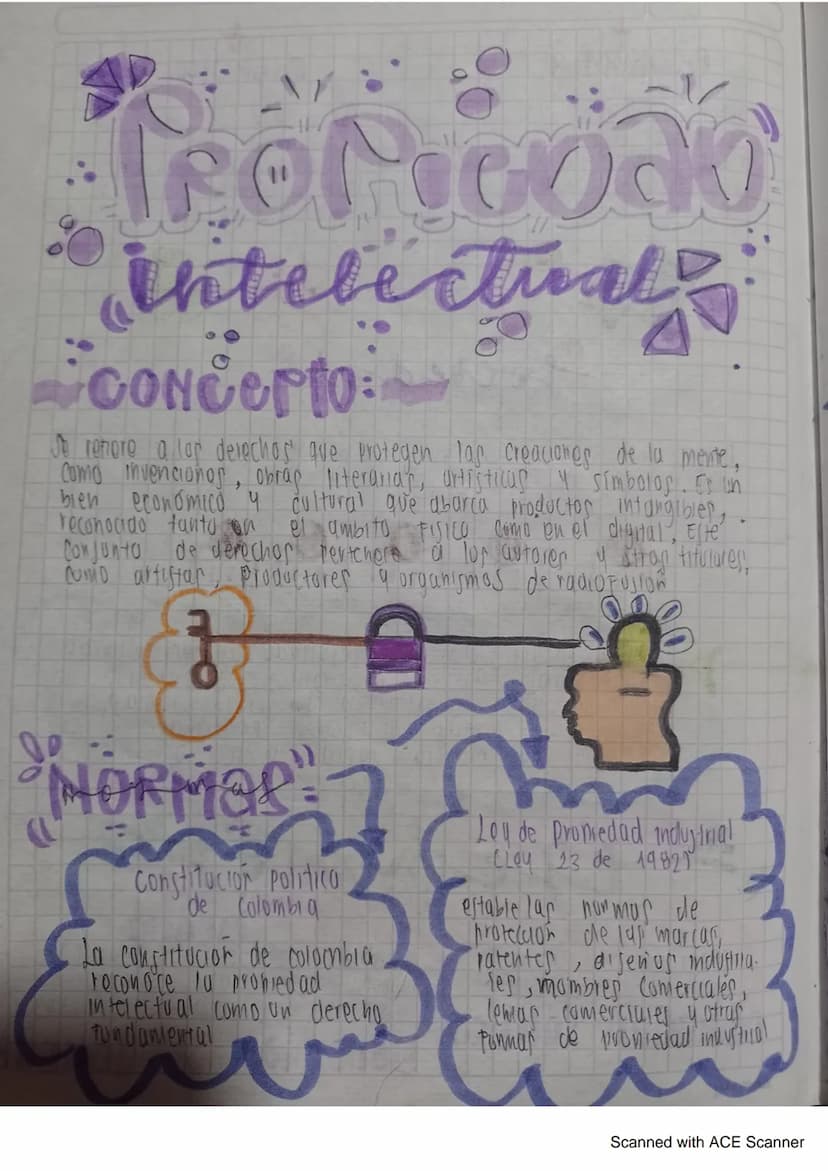 Propiedad
intelectual
CONCEPTO:
Se refiere a los derechos que protegen las creaciones de la mente,
como invenciones, obras literarias, artísticas y símbolos. Es un
bien económico y cultural que abarca productos intangibles,
reconocido tanto en el ambito fisico como en el digital, Este
conjunto de derechos pertenere a los autores y otros titulares,
como artistas, productores y organismos de radiofusión
NORMAS
normas
Constitución política
de Colombia
La constitución de colombia
reconoce la propiedad
intelectual como un derecho
fundamental
Ley de propiedad industrial
(Ley 23 de 1982)
estable las normas de
protección de las marcas,
patentes, diseños industria-
les, nombres comerciales,
lemas comerciales y otras
formas de propiedad industrial
Scanned with ACE Scanner